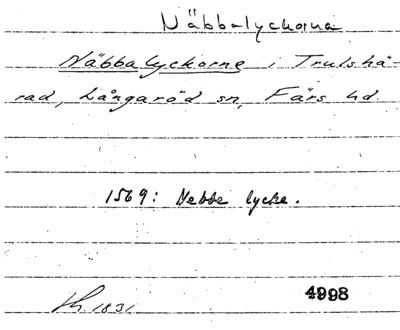 Näbbalyckorna
Näbbalyckorne i Trulshä-
rad, Långaröd sn, Färs hd
1569: Nebbe lycke.
1831
4998